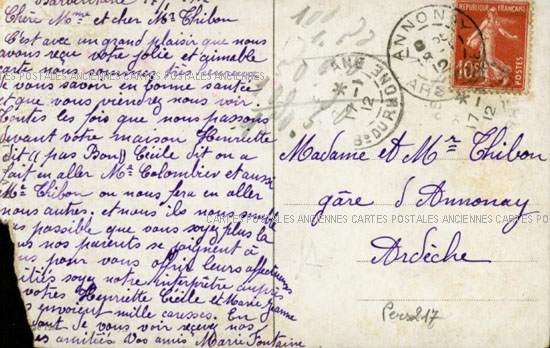 Chère Mme et cher Mr Thibon
C'est avec un grand plaisir que nous
avons reçu votre jolie et aimable
carte nous sommes très
de vous savoir en bonne santée
et que vous viendrez nous voir.
toutes les fois que nous passons
devant votre maison Henriette
dit (( pas Bon)) Cécile dit on a
fait en aller Mr Colombier et aussi
Mr Thibon ou nous fera en aller
nous autres et nous ils nous semble
pas possible que vous soyez plus la
nos parents se joignent à
pour vous offrir leurs affectueuses
amitiés soyez notre interprète auprès
votres Henriette Cécile et Marie Jeanne
envoient mille caresses. En
de vous voir reçevez nos
amitiés Vos amis Marie Fontaine
Madame et Mr Thibon
gâre d'Annonay
Ardèche
Pers217
REPUBLIQUE FRANÇAISE
10c
ANNONAY
ARDECHE
BY DURHONE
17 -1 12
CARTES POSTALES ANCIENNES CARTES POSTALES ANCIENNES CARTES POSTALES ANCIENNES